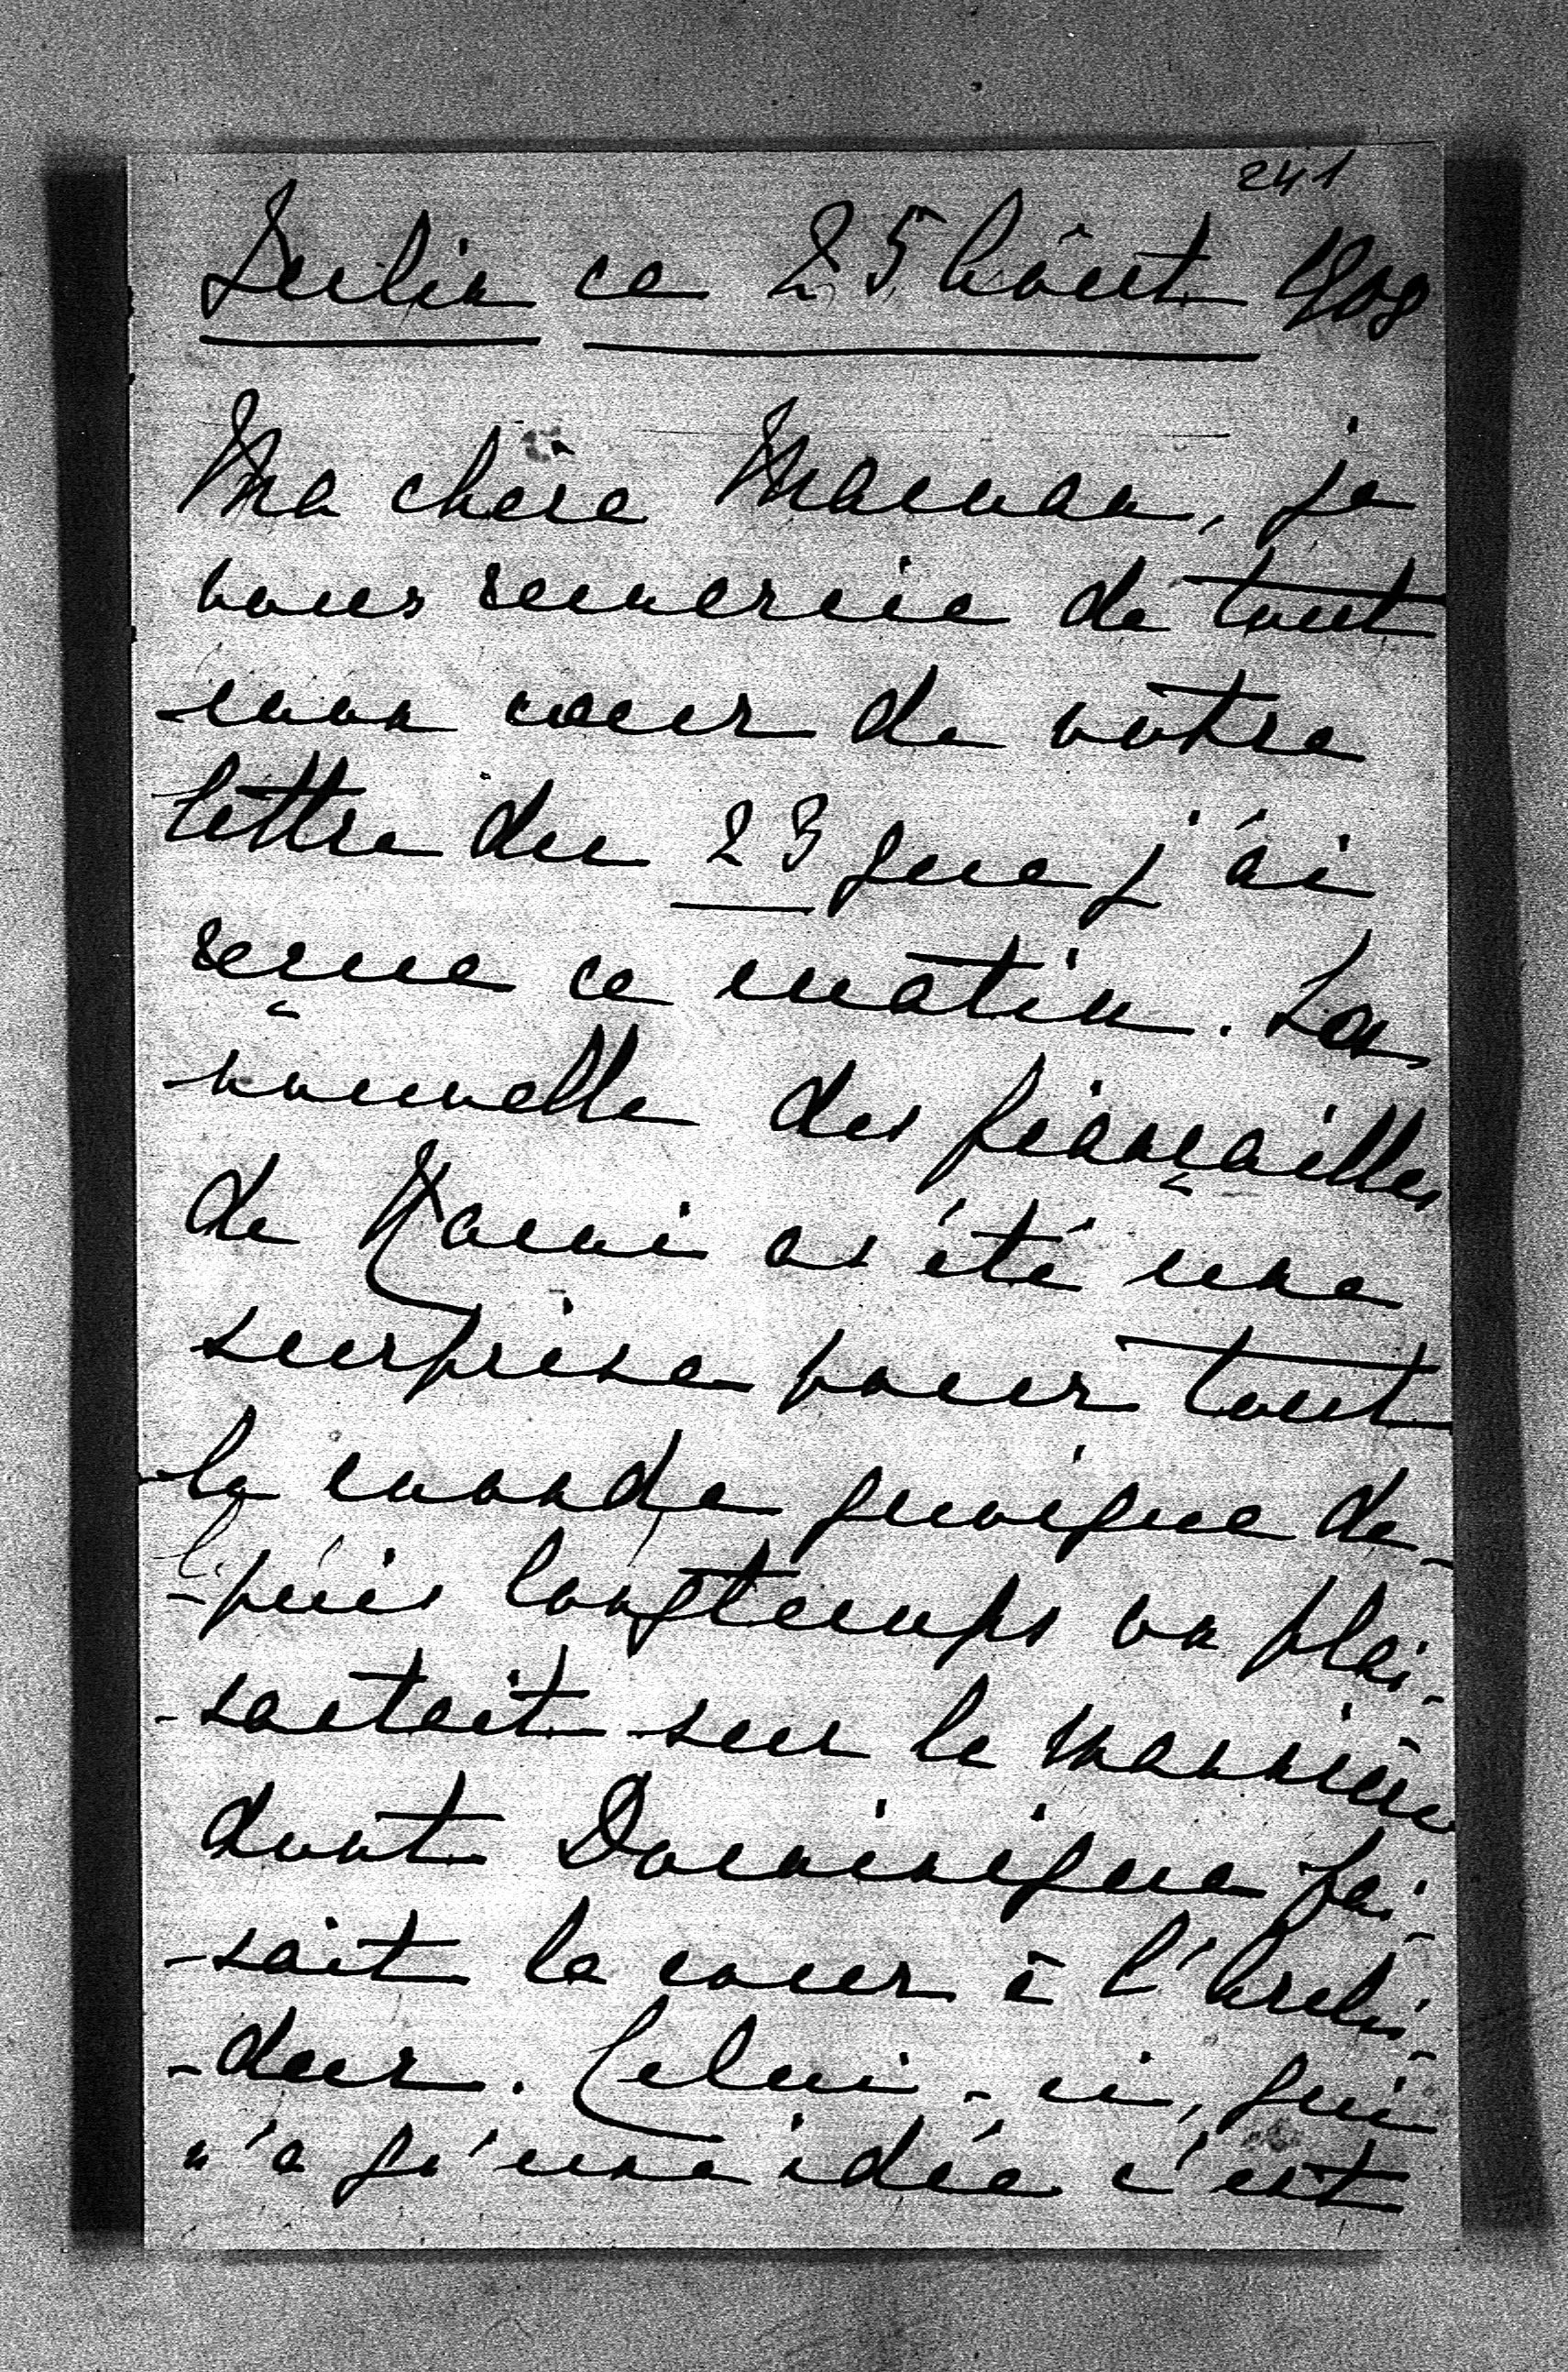 241
ce 25 Août 1908
Ma chère Maman, je
vous remercie de tout
mon cœur de votre
lettre du 23 que j'ai
reçue ce matin. La
nouvelle des fiançailles
de a été une
surprise pour tout
le monde quoique de-
-puis longtemps on plai-
-santait sur la manière
dont Dominique fai-
-sait la cour à
Celui-ci, qui
n'a qu'une idée c'est